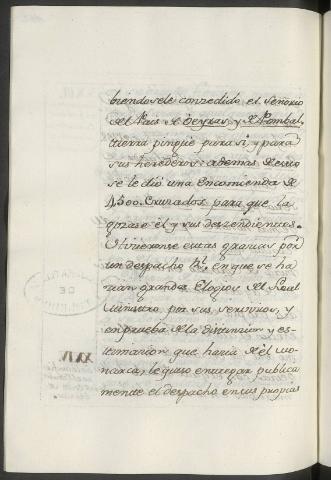 biendosele concedido el señorio
del Pais de Oeyras, y de Pombal,
tierra pingüe para si, y para
sus herederos: ademas de esto
se le dió una Encomienda de
4500. Cruzados para que la
gozase él y sus descendientes.
Obtuvieronse estas gracias por
un despacho Rl. en que se ha
cian grandes elogios del Real
Ministro por sus servicios, y
en prueba de la distincion y es-
timacion que hacia de él el mo-
narca, le quiso entregar publica
mente el despacho en sus propias